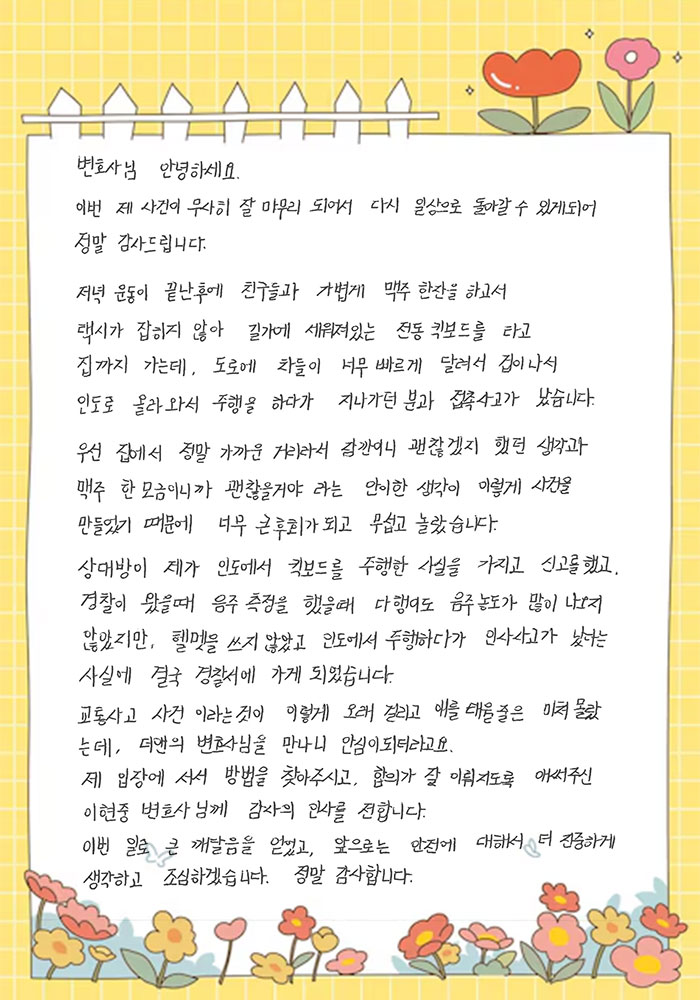 변호사님 안녕하세요.
이번 제 사건이 무사히 잘 마무리 되어서 다시 일상으로 돌아갈 수 있게되어
정말 감사드립니다.
저녁 운동이 끝난후에 친구들과 가볍게 맥주 한잔을 하고서
택시가 잡히지 않아 길가에 세워져있는 전동 킥보드를 타고
집까지 가는데, 도로에 차들이 너무 빠르게 달려서 겁이나서
인도로 올라와서 주행을 하다가 지나가던 분과 접촉사고가 났습니다.
우선 집에서 정말 가까운 거리라서 잠깐이니 괜찮겠지 했던 생각과
맥주 한 모금이니까 괜찮을거야 라는 안이한 생각이 이렇게 사건을
만들었기 때문에 너무 큰후회가 되고 무섭고 놀랐습니다.
상대방이 제가 인도에서 킥보드를 주행한 사실을 가지고 신고를했고,
경찰이 왔을때 음주 측정을 했을때 다행이도 음주농도가 많이 나오지
않았지만, 헬멧을 쓰지 않았고 인도에서 주행하다가 인사사고가 났다는
사실에 결국 경찰서에 가게 되었습니다.
교통사고 사건 이라는것이 이렇게 오래 걸리고 애를 태울줄은 미쳐 몰랐
는데, 더앤의 변호사님을 만나니 안심이되더라고요.
제 입장에 서서 방법을 찾아주시고, 합의가 잘 이뤄지도록 애써주신
이현중 변호사님께 감사의 인사를 전합니다.
이번 일로 큰 깨달음을 얻었고, 앞으로는 안전에 대해서 더 진중하게
생각하고 조심하겠습니다. 정말 감사합니다.